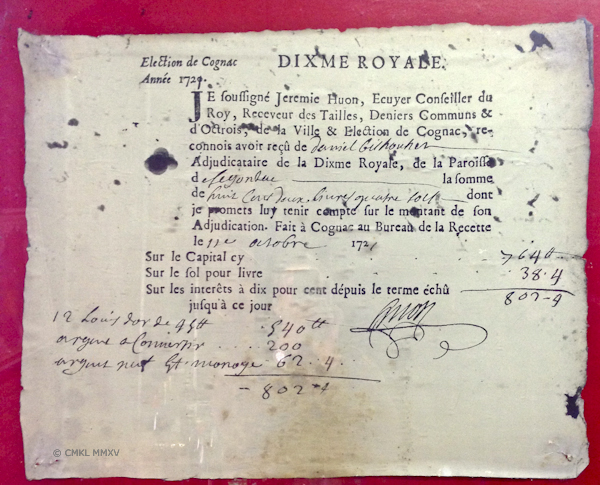 Election de Cognac DIXME ROYALE.
Année 172
JE soussigné Jeremie Huon, Ecuyer Conseiller du
Roy, Receveur des Tailles, Deniers Communs &
d'Octrois, de la Ville & Election de Cognac, re-
connois avoir reçû de daniel
Adjudicataire de la Dixme Royale, de la Paroisse
de Segonzac la somme
de huit cens deux livres quatre sols dont
je promets luy tenir compte sur le montant de son
Adjudication. Fait à Cognac au Bureau de la Recette
le 11e octobre 172
Sur le Capital cy 764tt
Sur le sol pour livre 38.4
Sur les interêts à dix pour cent dépuis le terme échû
jusqu'à ce jour 802-4
12 Louis dor de 45tt 540tt
huon
argent a 200
argent et monoye 62.4
802-4
© CMKL MMXV